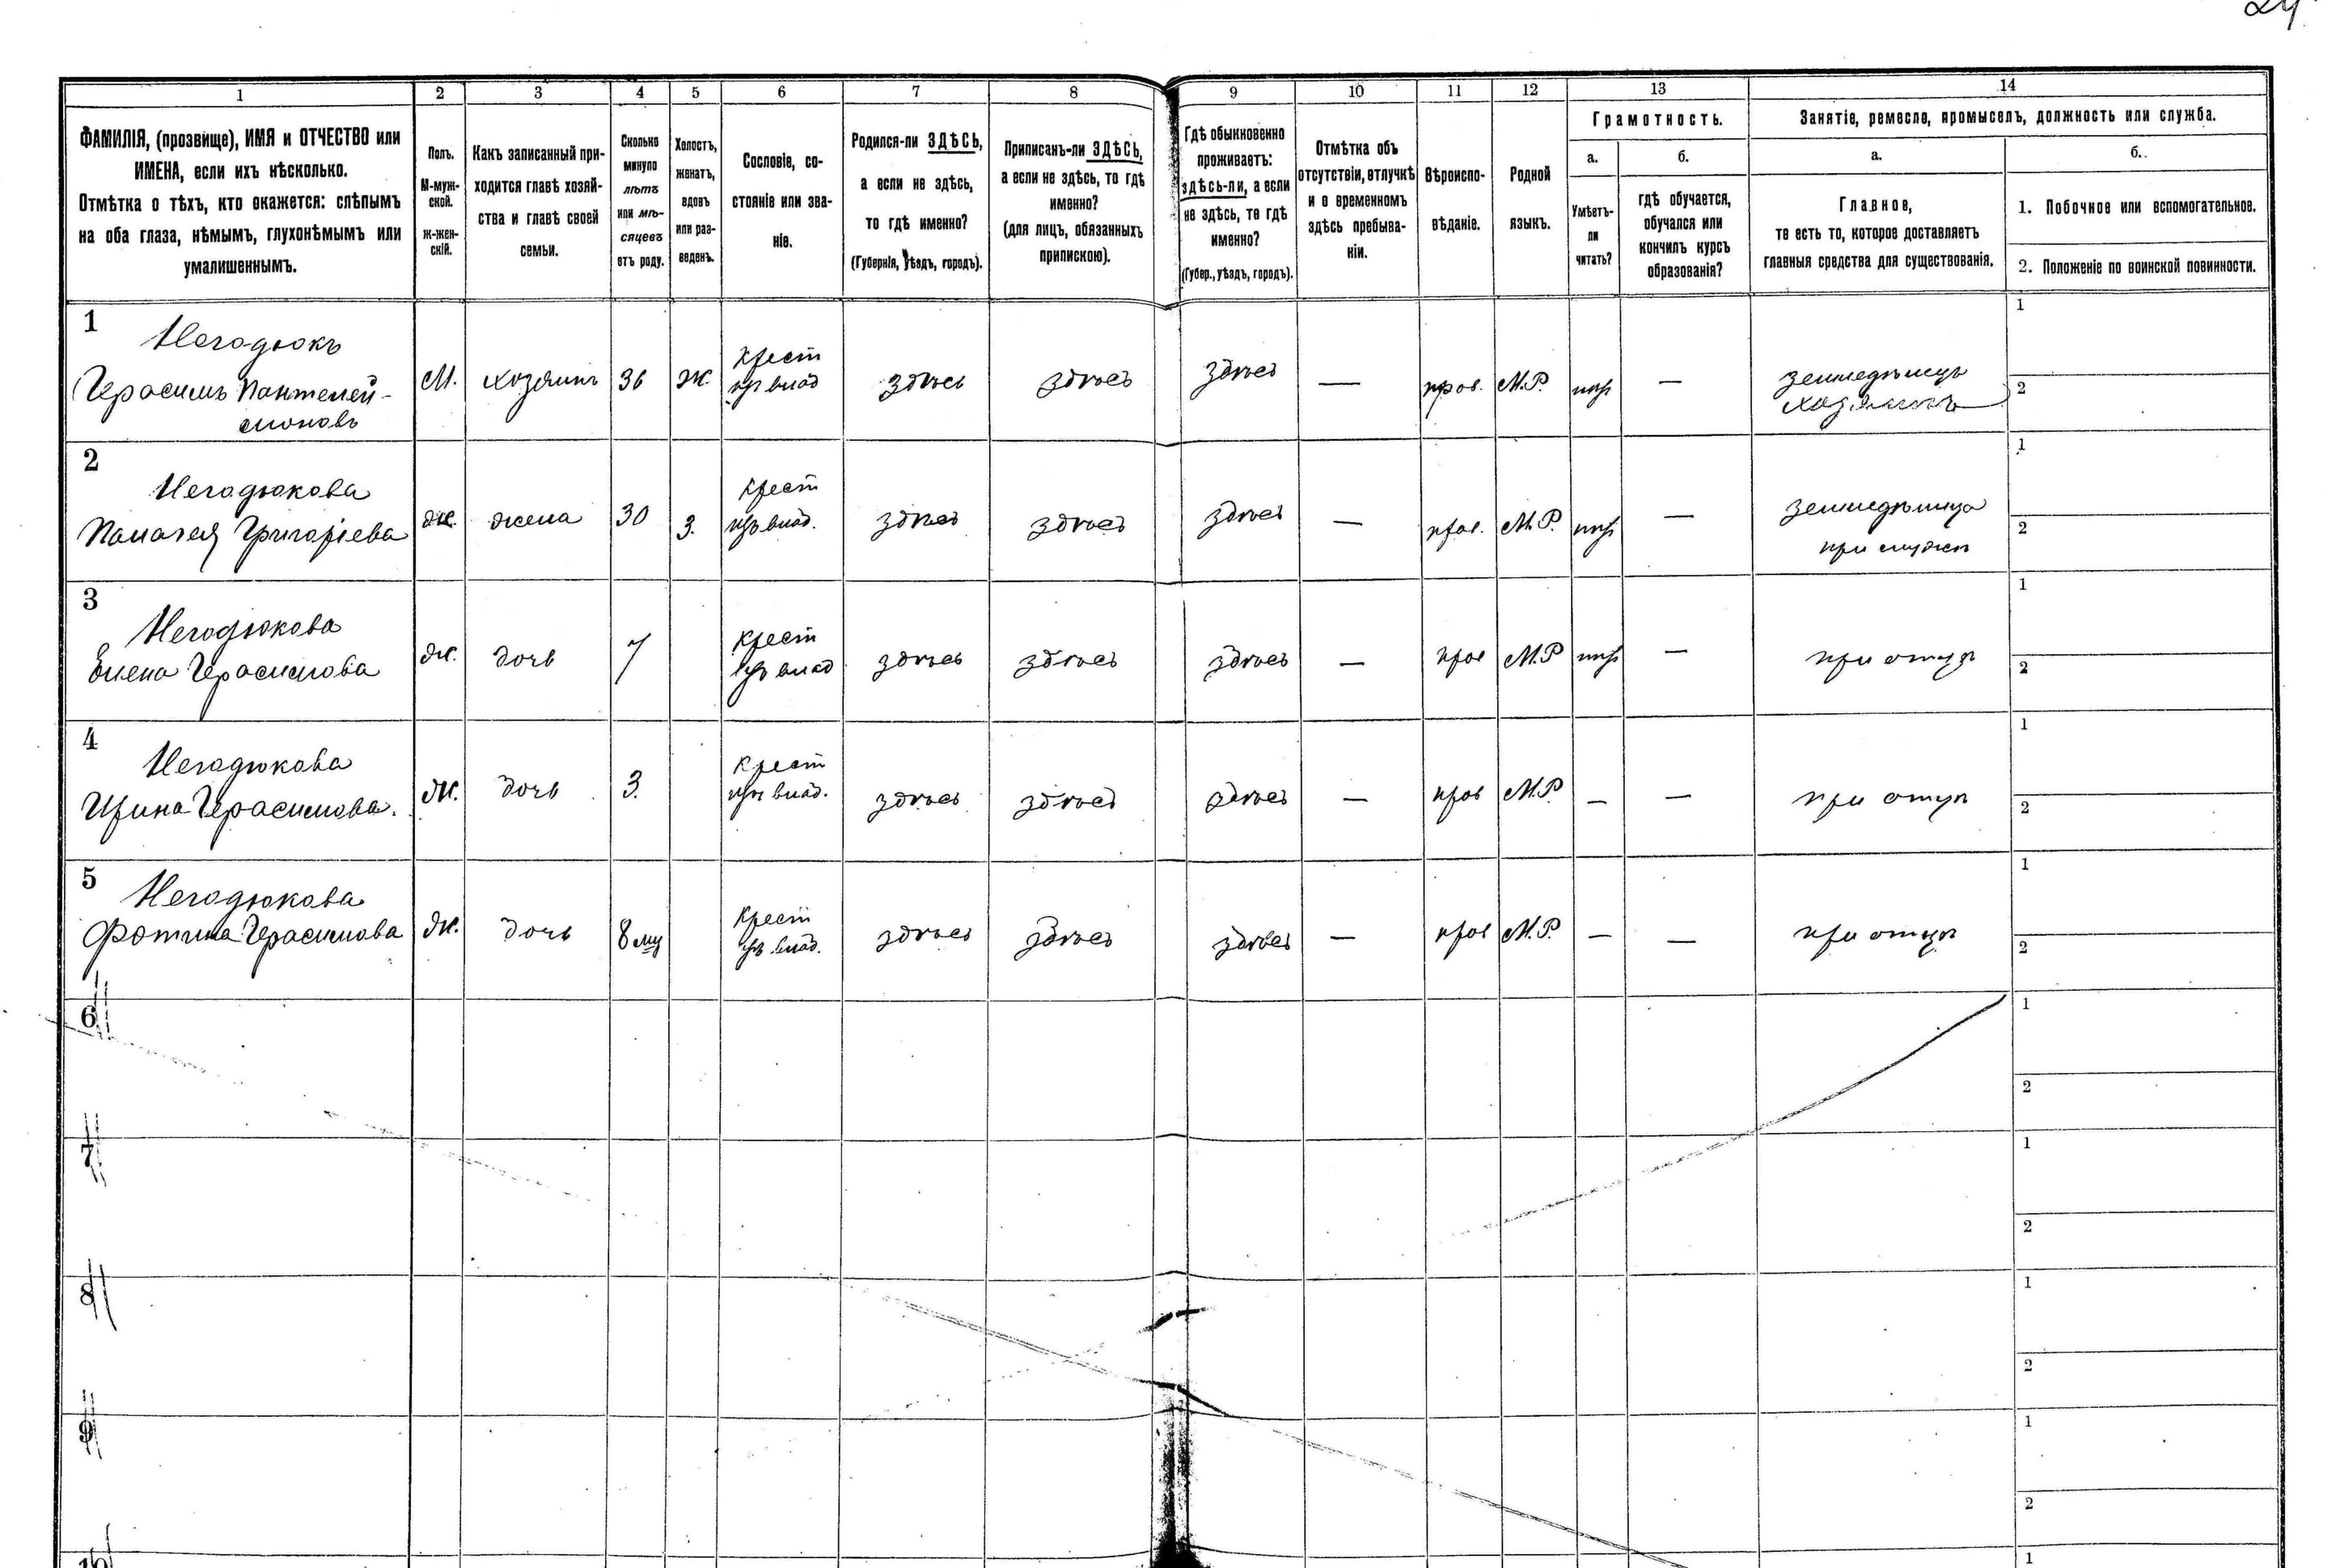 24
1 2 3 4 5 6 7 8 9 10 11 12 13 14
ФАМИЛІЯ, (прозвище), ИМЯ и ОТЧЕСТВО или
ИМЕНА, если ихъ нѣсколько.
Отмѣтка о тѣхъ, кто окажется: слѣпымъ
на оба глаза, нѣмымъ, глухонѣмымъ или
умалишеннымъ.
Полъ.
М-муж-
ской.
Ж-жен-
скій.
Какъ записанный при-
ходится главѣ хозяй-
ства и главѣ своей
семьи.
Сколько
минуло
лѣтъ
или мѣ-
сяцевъ
отъ роду.
Холостъ,
женатъ,
вдовъ
или раз-
веденъ.
Сословіе, со-
стояніе или зва-
ніе.
Родился-ли ЗДѢСЬ,
а если не здѣсь,
то гдѣ именно?
(Губернія, уѣздъ, городъ).
Приписанъ-ли ЗДѢСЬ,
а если не здѣсь, то гдѣ
именно?
(для лицъ, обязанныхъ
припискою).
Гдѣ обыкновенно
проживаетъ:
здѣсь-ли, а если
не здѣсь, то гдѣ
именно?
(Губер., уѣздъ, городъ).
Отмѣтка объ
отсутствіи, отлучкѣ
и о временномъ
здѣсь пребыва-
ніи.
Вѣроиспо-
вѣданіе.
Родной
языкъ.
Грамотность.
а.
Умѣетъ-
ли
читать?
б.
гдѣ обучается,
обучался или
кончилъ курсъ
образованія?
Занятіе, ремесло, промыселъ, должность или служба.
а.
Главное,
то есть то, которое доставляетъ
главныя средства для существованія.
б.
1. Побочное или вспомогательное.
2. Положеніе по воинской повинности.
1
Негодюкъ
Герасимъ Пантелей-
моновъ
М. хозяинъ 36 ж.
крест
из влад
здѣсь здѣсь здѣсь — прав. М.Р. нѣт —
земледѣлецъ
хозяинъ
1
2
2
Негодюкова
Палагея Григорьева
ж. жена 30 з.
крест
изъ влад.
здѣсь здѣсь здѣсь — прав. М.Р. нѣт —
земледѣлица
при мужѣ
1
2
3
Негодюкова
Елена Герасимова
ж. дочь 7
крест
изъ влад
здѣсь здѣсь здѣсь — прав М.Р нѣт —
при отцѣ
1
2
4
Негодюкова
Ирина Герасимова.
ж. дочь 3.
крест
изъ влад.
здѣсь здѣсь здѣсь — прав М.Р. — —
при отцѣ
1
2
5
Негодюкова
Фотина Герасимова
ж. дочь 8 мц
крест
изъ влад.
здѣсь здѣсь здѣсь — прав М.Р. — —
при отцѣ
1
2
6
1
2
7
1
2
8
1
2
9
1
2
10
1